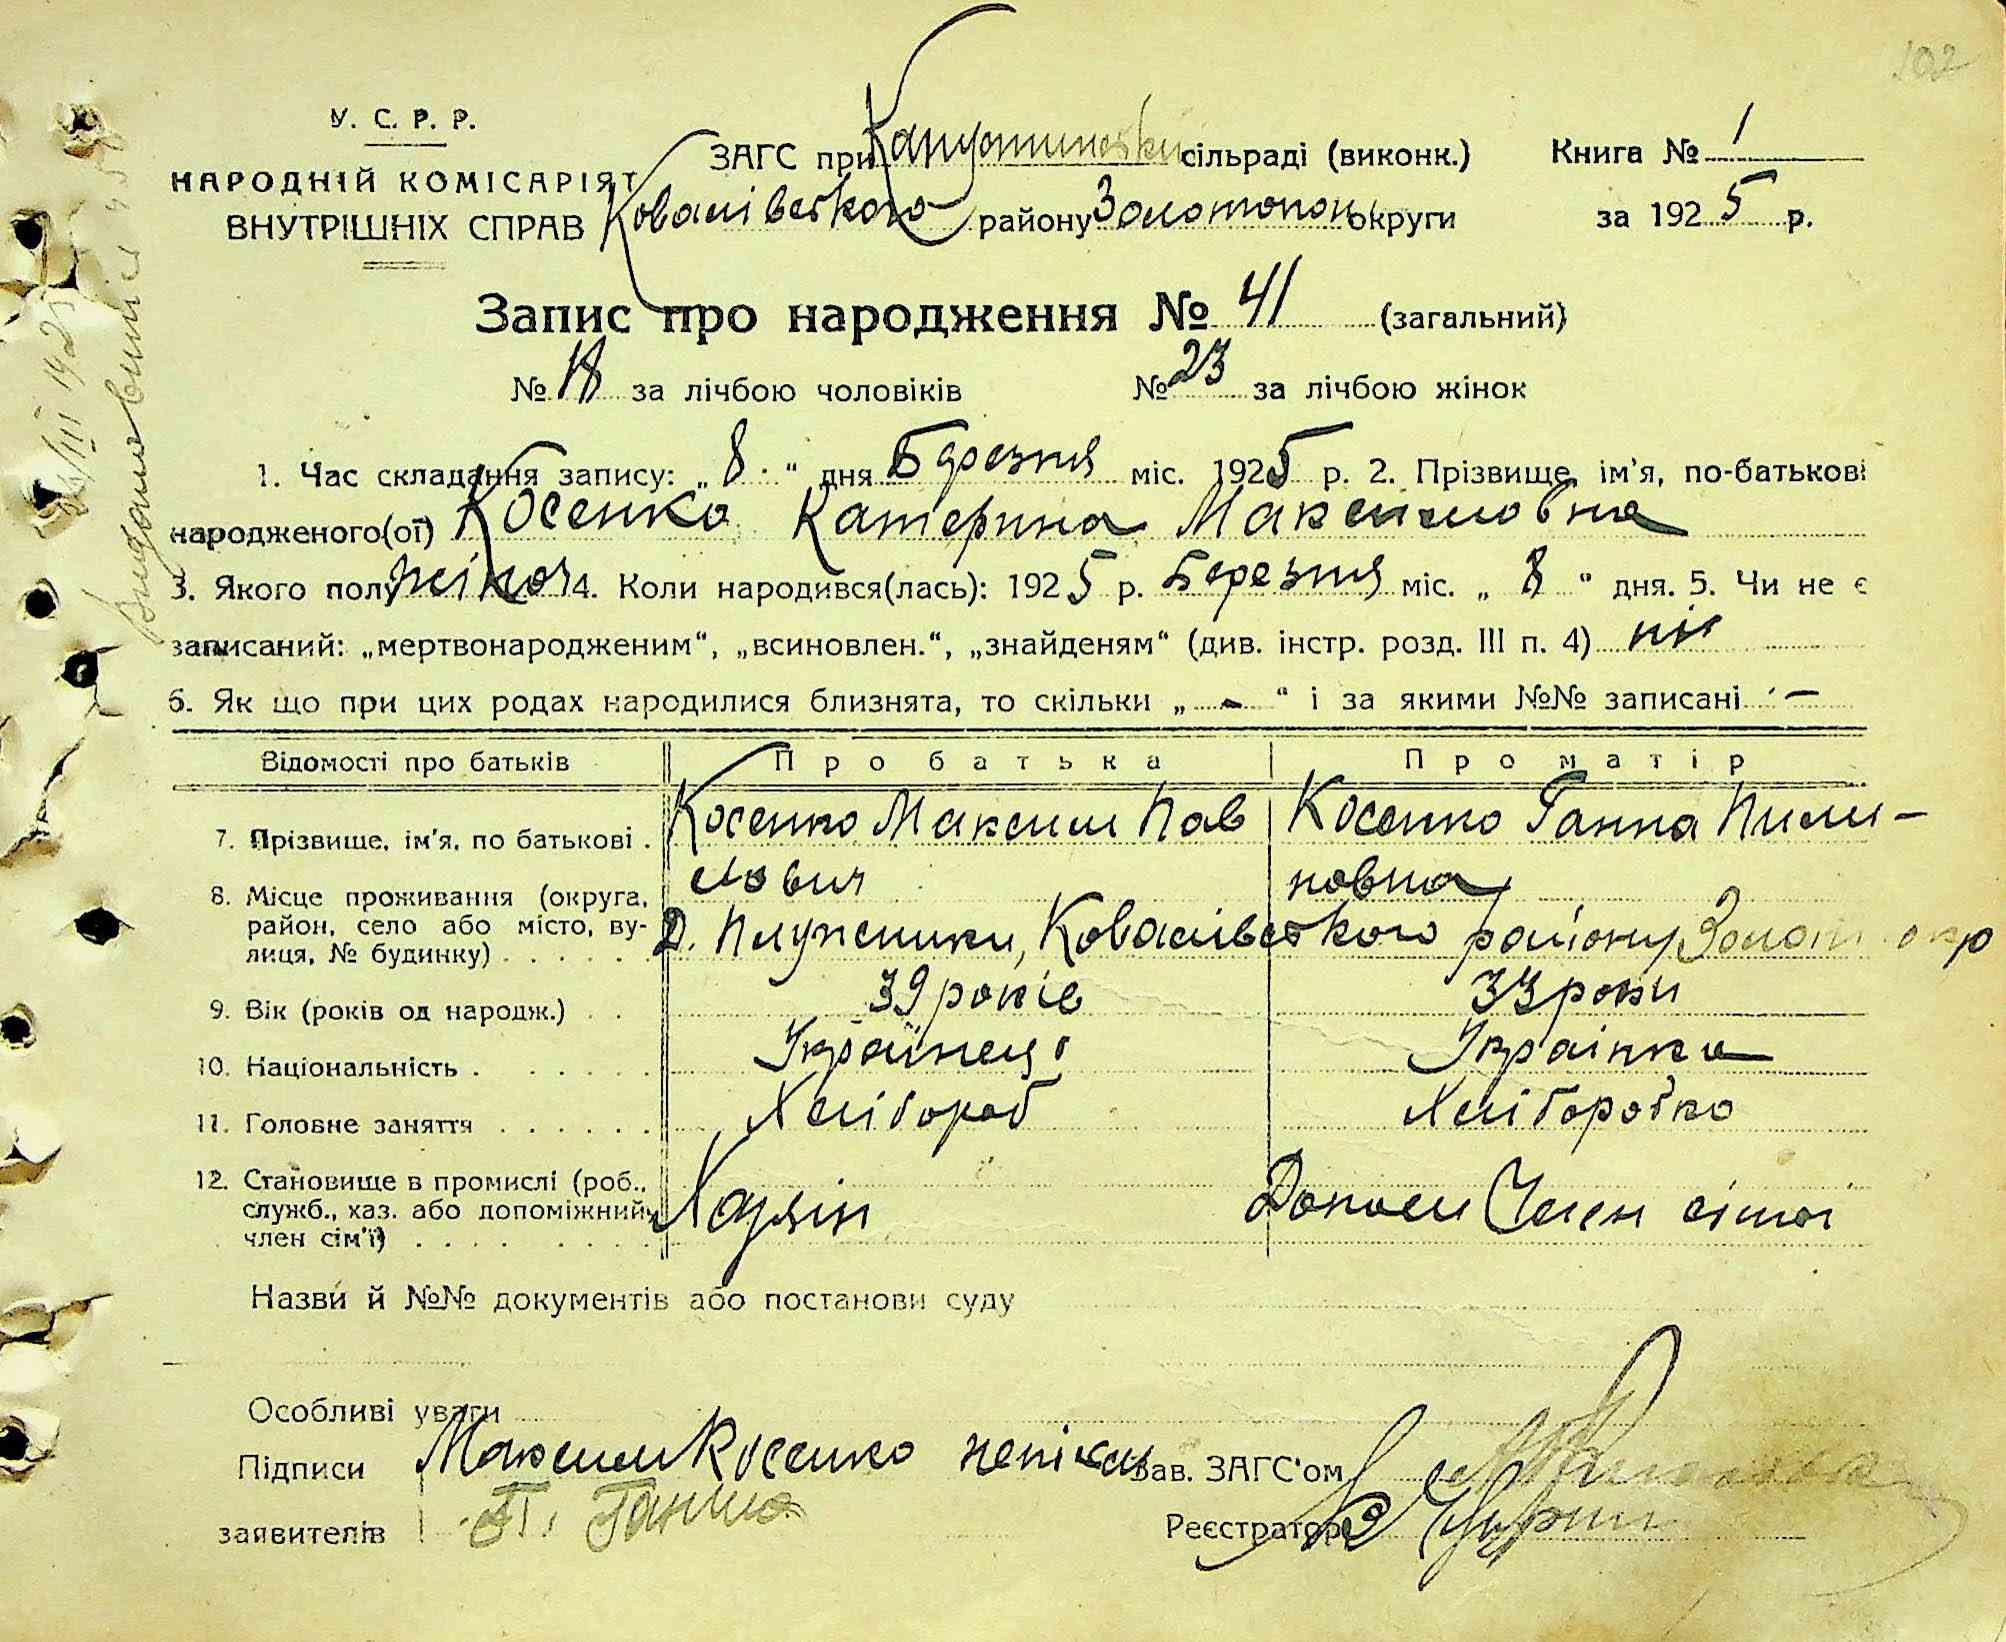 102
У. С. Р. Р.
НАРОДНІЙ КОМІСАРІЯТ
ВНУТРІШНІХ СПРАВ
ЗАГС при Капустинській сільраді (виконк.)
Ковалівського району Золотонош округи
Книга № 1
за 1925 р.
Запис про народження № 41 (загальний)
№ 18 за лічбою чоловіків № 23 за лічбою жінок
1. Час складання запису: „8.“ дня Березня міс. 1925 р. 2. Прізвище, ім'я, по-батькові
народженого(ої) Косенко Катерина Максимовна
3. Якого полу жіноч 4. Коли народився(лась): 1925 р. Березня міс. „8“ дня. 5. Чи не є
записаний: „мертвонародженим“, „всиновлен.“, „знайденям“ (див. інстр. розд. III п. 4) ні
6. Як що при цих родах народилися близнята, то скільки „-“ і за якими №№ записані -
Відомості про батьків Про батька Про матір
7. Прізвище, ім'я, по батькові . Косенко Максим Пав Косенко Ганна Пили-
лович повна
8. Місце проживання (округа,
район, село або місто, ву-
лиця, № будинку) . . . . . . Д. Плужники, Ковалівського району Золот окр
9. Вік (років од народж.) . . 39 років 33 роки
10. Національність . . . . . . Українець Українка
11. Головне заняття . . . . . . Хлібороб Хліборобка
12. Становище в промислі (роб.,
служб., хаз. або допоміжний
член сім'ї) . . . . . . . . Хазяін Допом Член сімьі
Назви й №№ документів або постанови суду
Особливі уваги
Підписи Максим Косенко неписм Зав. ЗАГС'ом
заявителів Ганна Реєстратор